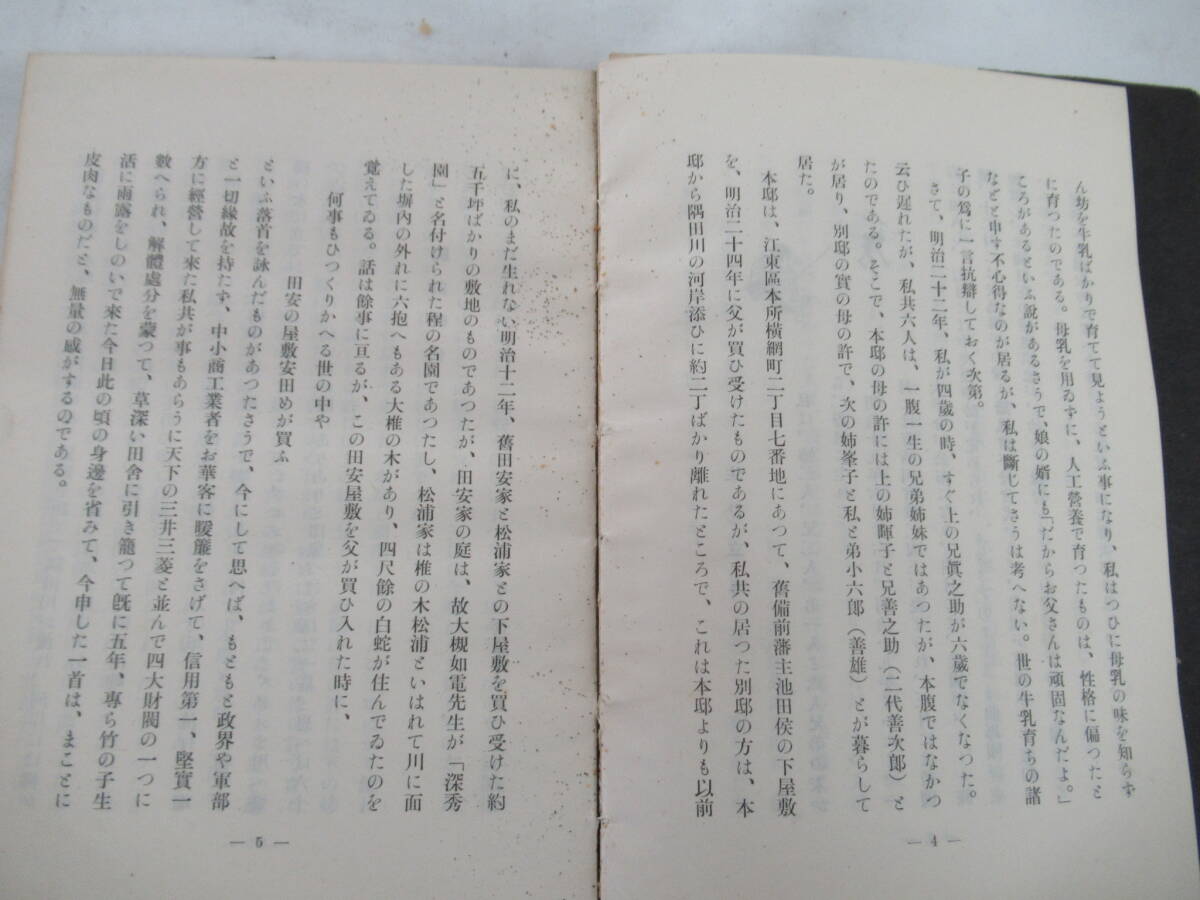 ん坊を牛乳ばかりで育てて見ようといふ事になり、私はつひに母乳の味を知らず
に育つたのである。母乳を用ゐずに、人工營養で育つたものは、性格に偏つたと
ころがあるといふ說があるさうで、娘の婿にも「だからお父さんは頑固なんだよ。」
などと申す不心得なのが居るが、私は斷じてさうは考へない。世の牛乳育ちの諸
子の爲に一言抗辯しておく次第。
さて、明治二十二年、私が四歲の時、すぐ上の兄眞之助が六歲でなくなつた。
云ひ遲れたが、私共六人は、一腹一生の兄弟姉妹ではあつたが、本腹ではなかつ
たのである。そこで、本邸の母の許には上の姉暉子と兄善之助（二代善次郎）と
が居り、別邸の實の母の許で、次の姉峯子と私と弟小六郎（善雄）とが暮らして
居た。
本邸は、江東區本所橫網町二丁目七番地にあつて、舊備前藩主池田侯の下屋敷
を、明治二十四年に父が買ひ受けたものであるが、私共の居つた別邸の方は、本
邸から隅田川の河岸添ひに約二丁ばかり離れたところで、これは本邸よりも以前
— 4 —
に、私のまだ生れない明治十二年、舊田安家と松浦家との下屋敷を買ひ受けた約
五千坪ばかりの敷地のものであつたが、田安家の庭は、故大槻如電先生が「深秀
園」と名付けられた程の名園であつたし、松浦家は椎の木松浦といはれて川に面
した塀內の外れに六抱へもある大椎の木があり、四尺餘の白蛇が住んでゐたのを
覚えてゐる。話は餘事に亘るが、この田安屋敷を父が買ひ入れた時に、
何事もひつくりかへる世の中や
田安の屋敷安田めが買ふ
といふ落首を詠んだものがあつたさうで、今にして思へば、もともと政界や軍部
と一切緣故を持たず、中小商工業者をお華客に暖簾をさげて、信用第一、堅實一
方に經營して來た私共が事もあらうに天下の三井三菱と並んで四大財閥の一つに
數へられ、解體處分を蒙つて、草深い田舍に引き籠つて旣に五年、專ら竹の子生
活に雨露をしのいで來た今日此の頃の身邊を省みて、今申した一首は、まことに
皮肉なものだと、無量の感がするのである。
— 5 —